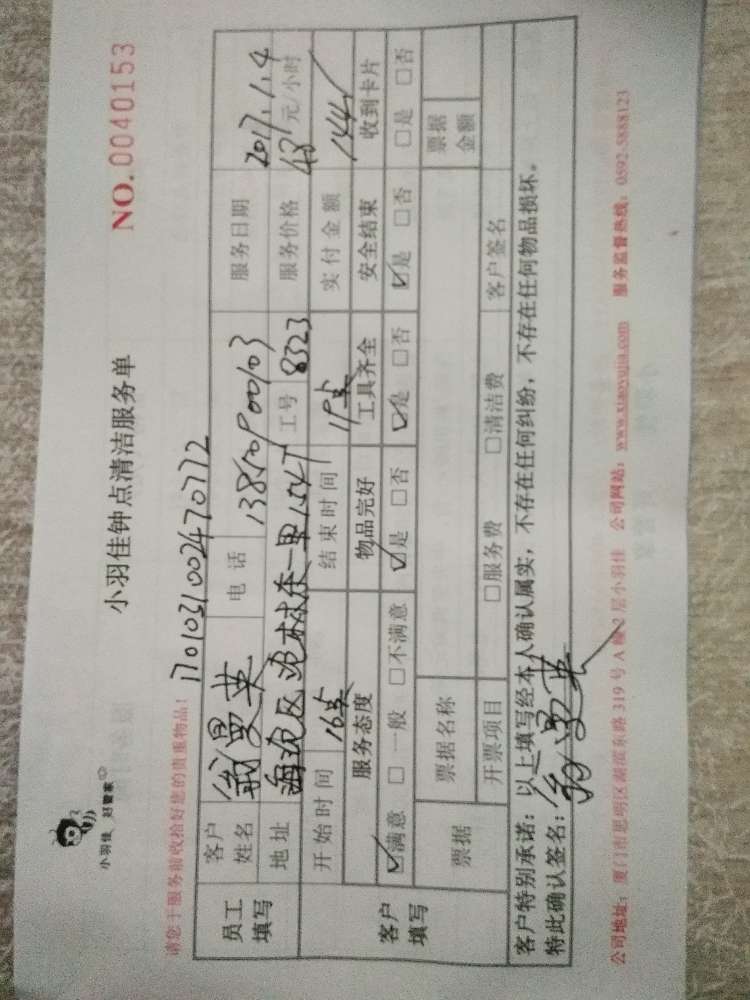 小羽佳 好管家
小羽佳钟点清洁服务单
NO.0040153
请您于服务前收拾好您的贵重物品!
17010310024707​72
员工填写
客户姓名 翁曼英 电话 13850900103 服务日期 2017.1.4
地址 海沧区 一里 工号 8323 服务价格 48 元/小时
客户填写
开始时间 16点 结束时间 19点 实付金额 144
服务态度 物品完好 工具齐全 安全结束 收到卡片
☑满意 □一般 □不满意 ☑是 □否 ☑是 □否 ☑是 □否 □是 □否
票据 票据名称 票据金额
开票项目 □服务费 □清洁费 客户签名
客户特别承诺:以上填写经本人确认属实,不存在任何纠纷,不存在任何物品损坏。
特此确认签名:翁曼英
公司地址:厦门市思明区湖滨东路 319 号 A 幢 2 层小羽佳 公司网站:www.xiaoyujia.com 服务监督热线:0592-5888123